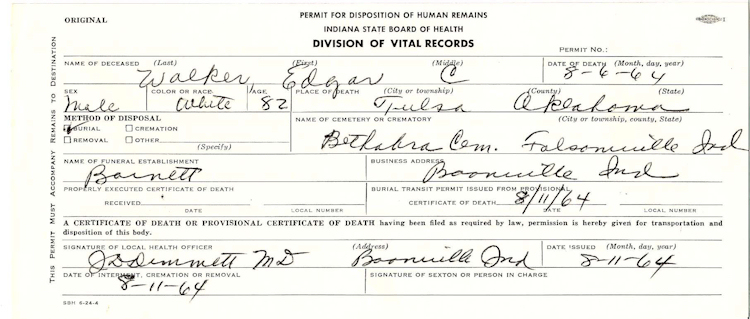 ORIGINAL
PERMIT FOR DISPOSITION OF HUMAN REMAINS
INDIANA STATE BOARD OF HEALTH
DIVISION OF VITAL RECORDS
PERMIT NO.:
THIS PERMIT MUST ACCOMPANY REMAINS TO DESTINATION
NAME OF DECEASED (Last) (First) (Middle) DATE OF DEATH (Month, day, year)
Walker, Edgar C 8-6-64
SEX COLOR OR RACE AGE PLACE OF DEATH (City or township) (County) (State)
Male White 82 Tulsa Oklahoma
METHOD OF DISPOSAL NAME OF CEMETERY OR CREMATORY (City or township, county, State)
BURIAL CREMATION
REMOVAL OTHER
(Specify)
Bethabra Cem. Folsomville Ind
NAME OF FUNERAL ESTABLISHMENT BUSINESS ADDRESS
Barnett Boonville Ind
PROPERLY EXECUTED CERTIFICATE OF DEATH BURIAL TRANSIT PERMIT ISSUED FROM PROVISIONAL
RECEIVED CERTIFICATE OF DEATH 8/11/64
DATE LOCAL NUMBER DATE LOCAL NUMBER
A CERTIFICATE OF DEATH OR PROVISIONAL CERTIFICATE OF DEATH having been filed as required by law, permission is hereby given for transportation and
disposition of this body.
SIGNATURE OF LOCAL HEALTH OFFICER (Address) DATE ISSUED (Month, day, year)
Dimmett MD Boonville Ind 8-11-64
DATE OF INTERMENT, CREMATION OR REMOVAL SIGNATURE OF SEXTON OR PERSON IN CHARGE
8-11-64
SBH 6-24-4